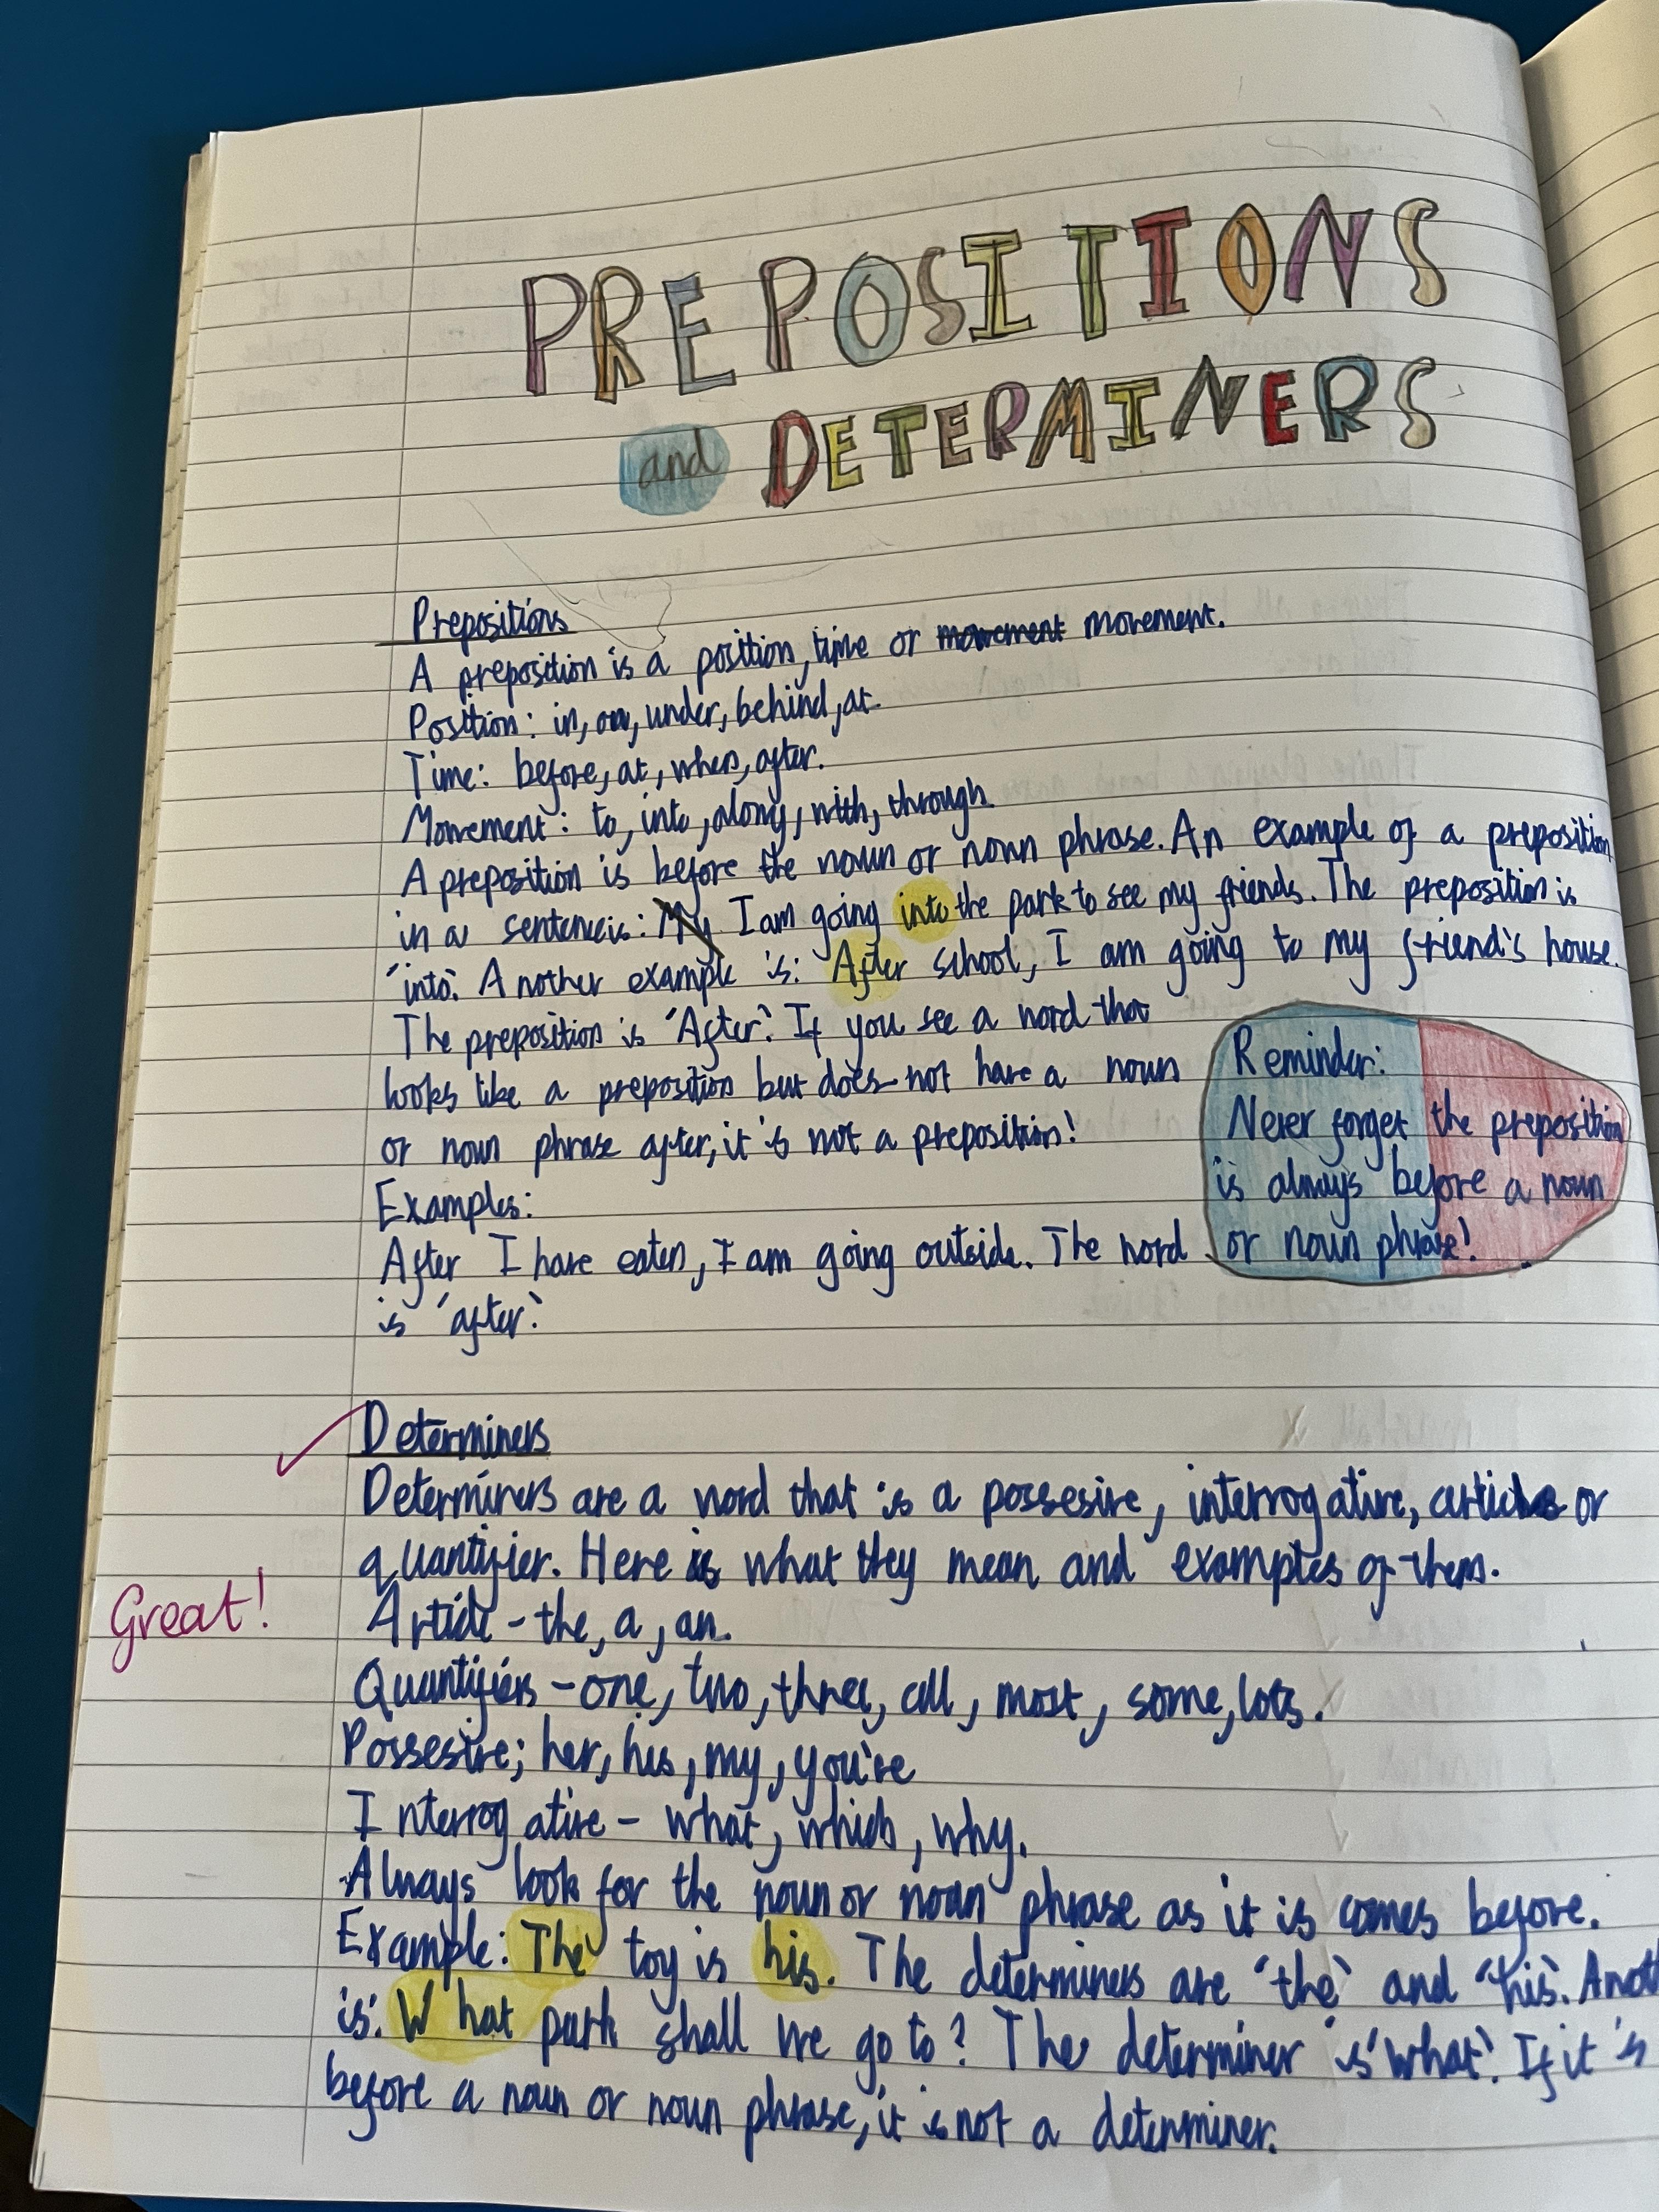 PREPOSITIONS
and DETERMINERS
Prepositions
A preposition is a position, time or movement movement.
Position: in, on, under, behind, at.
Time: before, at, when, after.
Movement: to, into, along, with, through.
A preposition is before the noun or noun phrase. An example of a preposition
in a sentence is: My I am going into the park to see my friends. The preposition is
'into'. Another example is: After school, I am going to my friend's house.
The preposition is 'After'. If you see a word that
looks like a preposition but does not have a noun
or noun phrase after, it is not a preposition!
Examples:
After I have eaten, I am going outside. The word
is 'after'.
Reminder:
Never forget the preposition
is always before a noun
or noun phrase!
Determiners
Determiners are a word that is a possesive, interrogative, article or
quantifier. Here is what they mean and examples of them.
Great!
Article - the, a, an.
Quantifiers - one, two, three, all, most, some, lots.
Possesive; her, his, my, you're
Interrogative - what, which, why.
Always look for the noun or noun phrase as it is comes before.
Example: The toy is his. The determiners are 'the' and 'his'. Anot
is: What park shall we go to? The determiner is 'what'. If it is
before a noun or noun phrase, it is not a determiner.